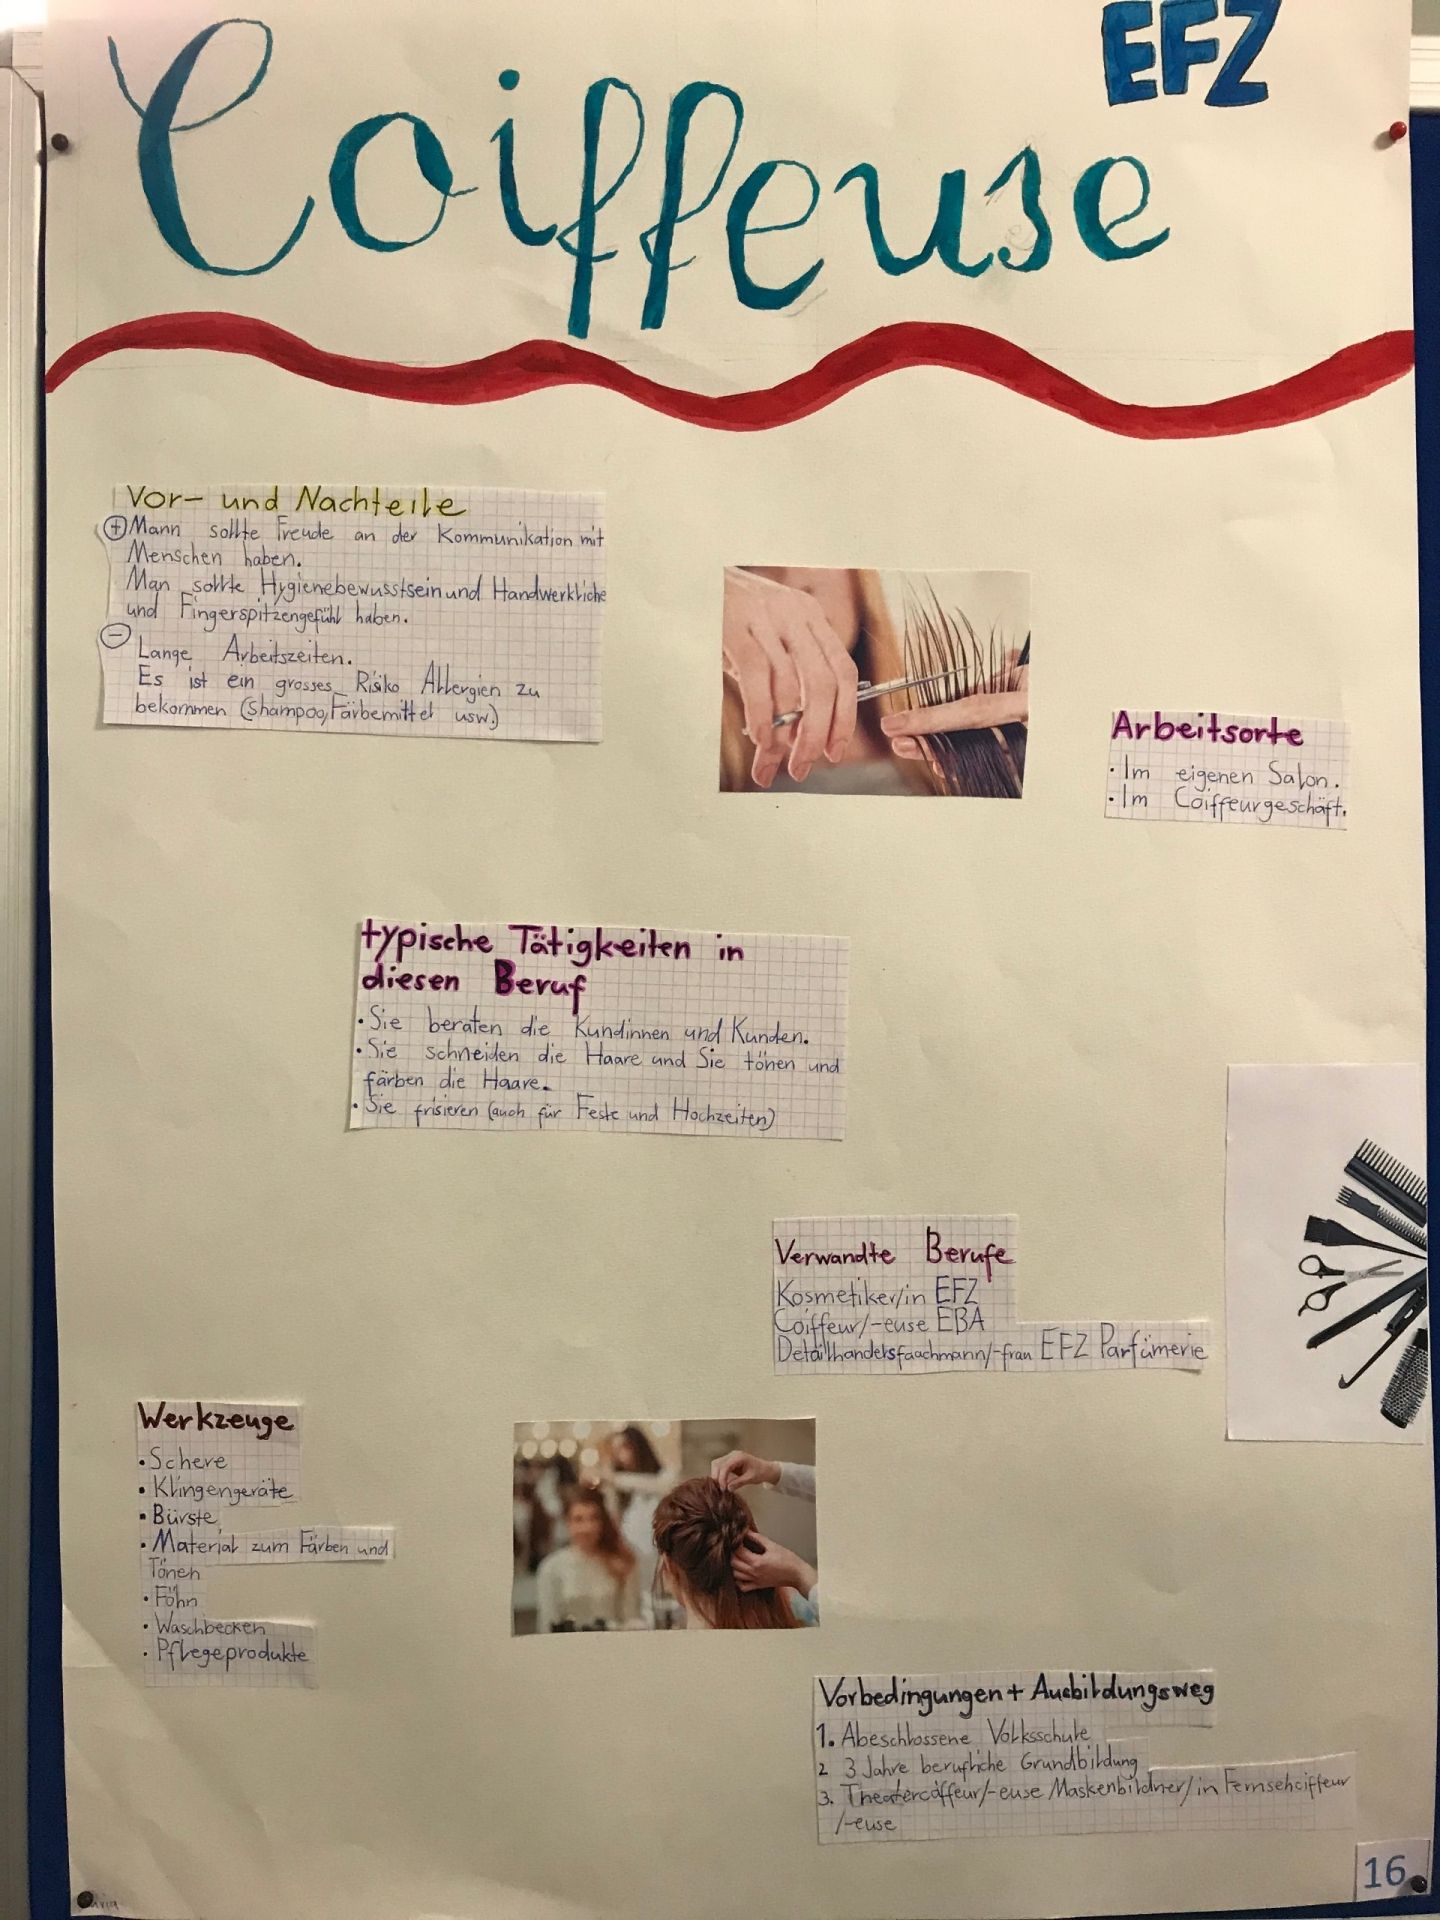 Coiffeuse
EFZ
Vor- und Nachteile
+ Mann sollte Freude an der Kommunikation mit
Menschen haben.
Man sollte Hygienebewusstsein und Handwerkliche
und Fingerspitzengefühl haben.
-
Lange Arbeitszeiten.
Es ist ein grosses Risiko Allergien zu
bekommen (Shampoo, Färbemittel usw.)
Arbeitsorte
• Im eigenen Salon.
• Im Coiffeurgeschäft.
typische Tätigkeiten in
diesen Beruf
• Sie beraten die Kundinnen und Kunden.
• Sie schneiden die Haare und Sie tönen und
färben die Haare.
• Sie frisieren (auch für Feste und Hochzeiten)
Verwandte Berufe
Kosmetiker/in EFZ
Coiffeur/-euse EBA
Detailhandelsfaachmann/-frau EFZ Parfümerie
Werkzeuge
• Schere
• Klingengeräte
• Bürste
• Material zum Färben und
Tönen
• Föhn
• Waschbecken
• Pflegeprodukte
Vorbedingungen + Ausbildungsweg
1. Abeschlossene Volksschule
2 3 Jahre berufliche Grundbildung
3. Theatercoffeur/-euse Maskenbildner/in Fernsehcoiffeur
/-euse
16